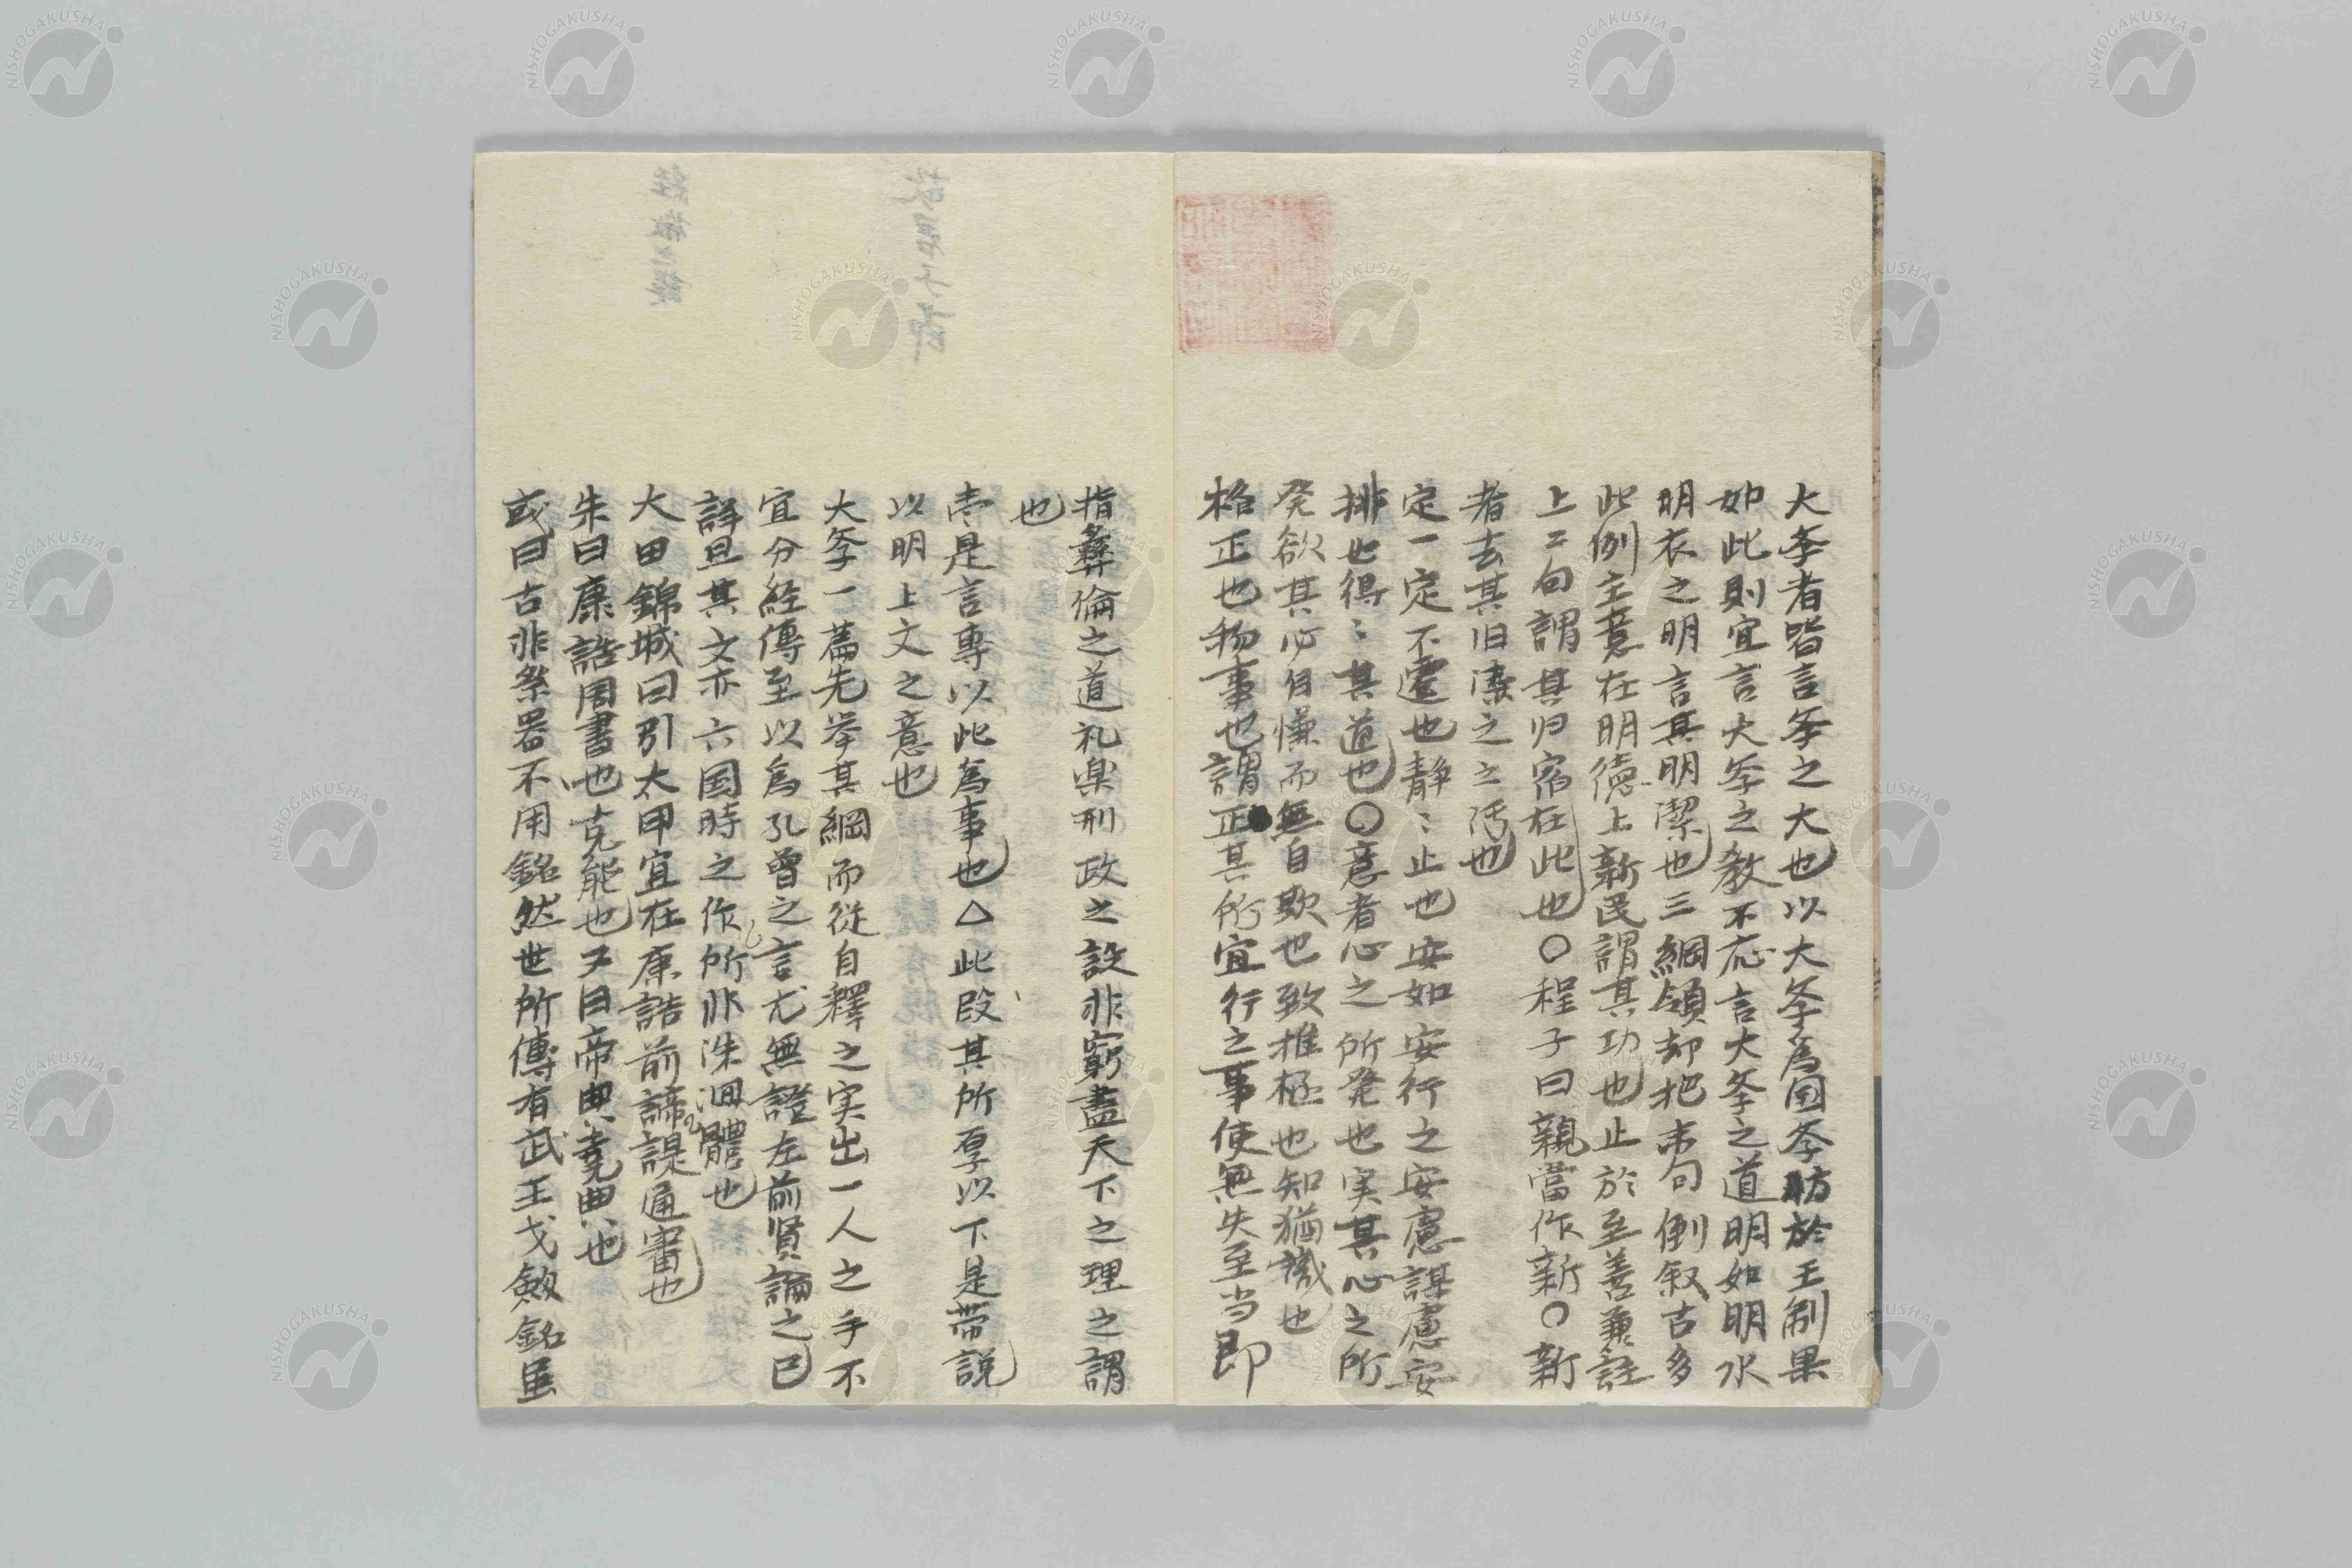 大斈者皆言斈之大也以大斈為国斈昉於王制果
如此則宜言大斈之教不応言大斈之道明如明水
明衣之明言其明潔也三綱領却把末句倒叙古多
此例主意在明徳上新民謂其功也止於至善兼註
上二句謂其帰宿在此也〇程子曰親當作新〇新
者去其旧湊之之汚也
定一定不遷也静〻止也安如安行之安慮謀慮安
排也得〻其道也〇意者心之所発也実其心之所
発欲其必自慊而無自欺也致推極也知猶識也
格正也物事也謂正其所宜行之事使無失至当即
指彝倫之道礼楽刑政之設非窮盡天下之理之謂
也
壱是言専以此為事也△此段其所厚以下是帯説
以明上文之意也
大斈一篇先挙其綱而従自釋之実出一人之手不
宜分経傳至以為孔曾之言尤無證左前賢論之已
詳且其文亦六国時之作所非洙泗體也
大田錦城曰引太甲宜在康誥前諦諟通審也
朱曰康誥周書也克能也又曰帝典堯典也
或曰古非祭器不用銘然世所傳有武王戈劔銘虽
NISHOGAKUSHA